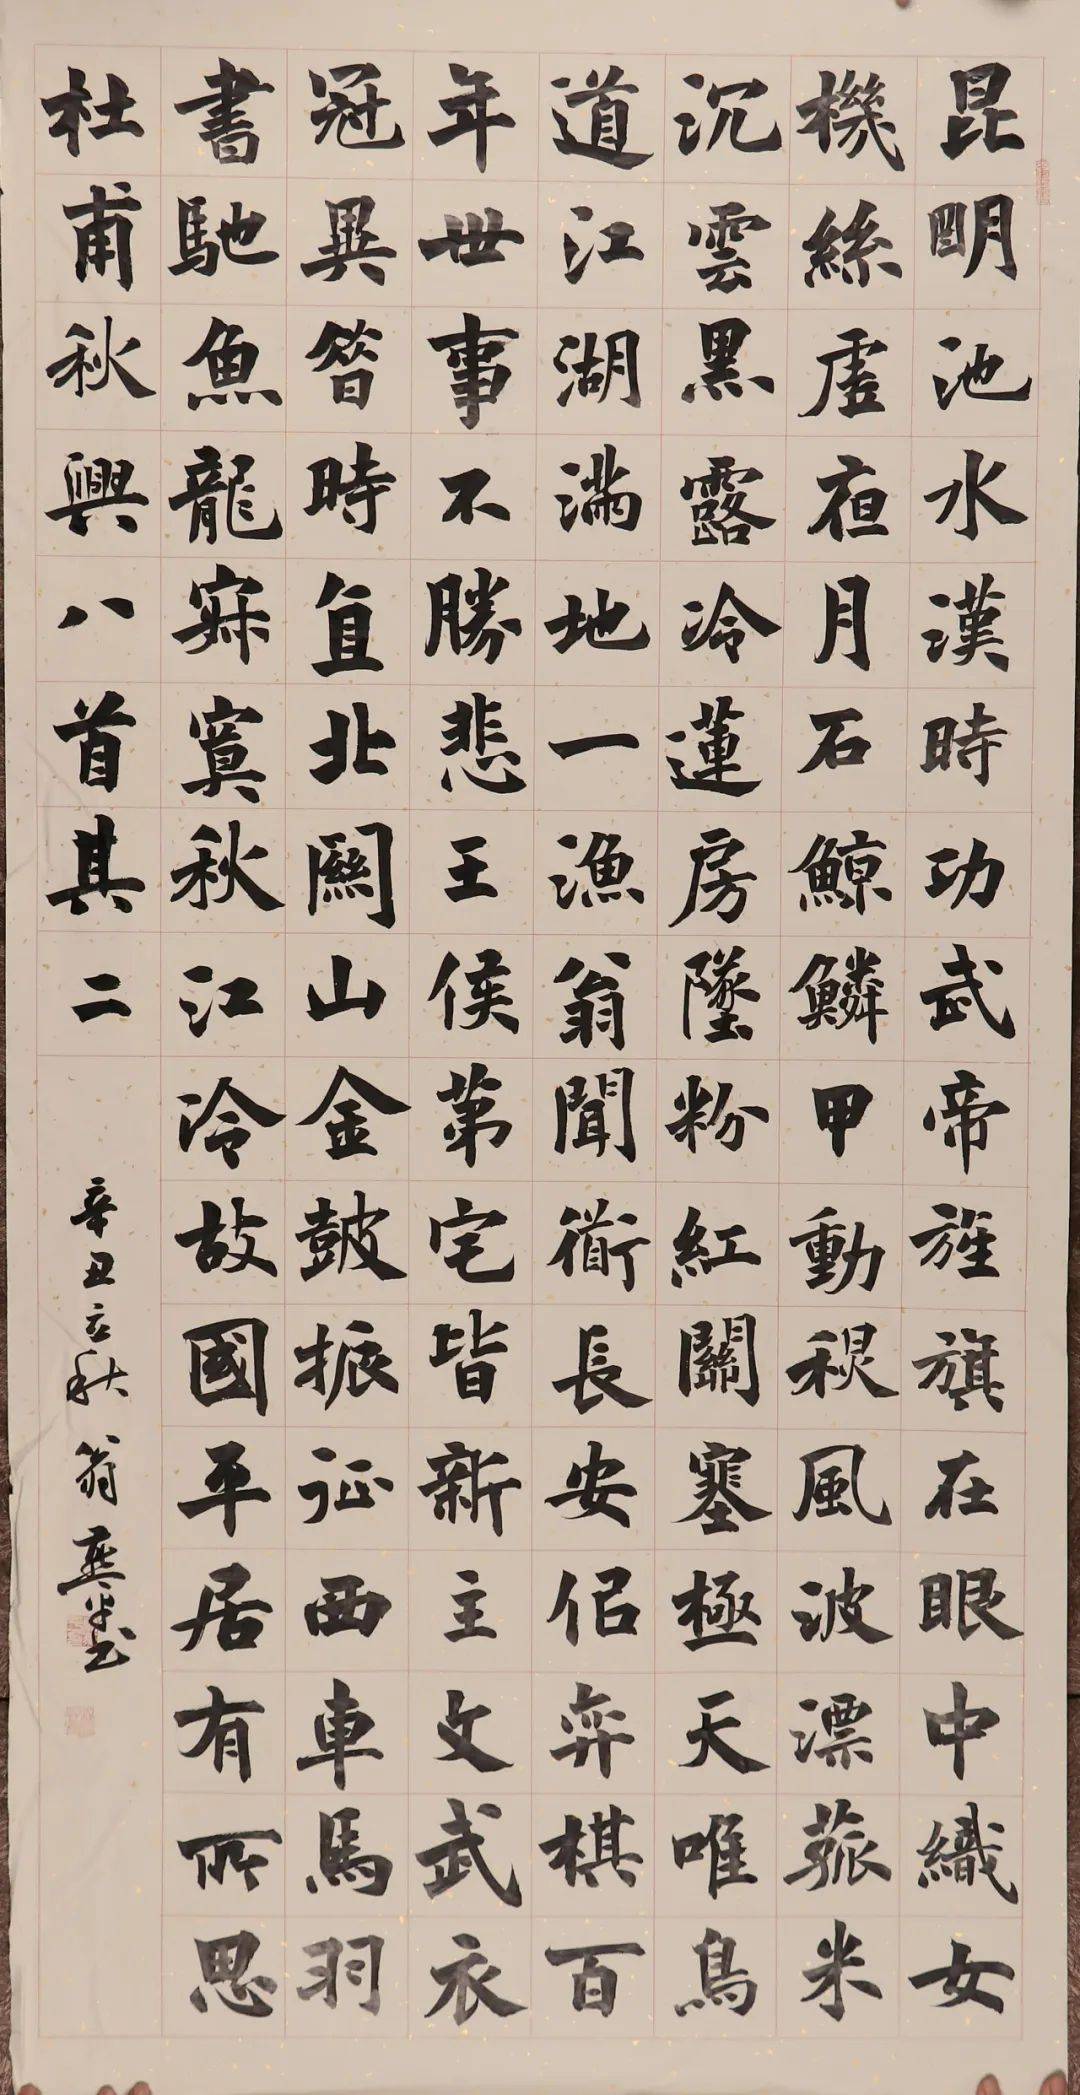 昆明池水漢時功武帝旌旗在眼中織女
機絲虛夜月石鯨鱗甲動秋風波漂菰米
沉雲黑露冷蓮房墜粉紅關塞極天唯鳥
道江湖滿地一漁翁聞道長安佀弈棋百
年世事不勝悲王侯第宅皆新主文武衣
冠異昝時直北關山金鼓振征西車馬羽
書馳魚龍寂寞秋江冷故國平居有所思
杜甫秋興八首其二
辛丑立秋 翁